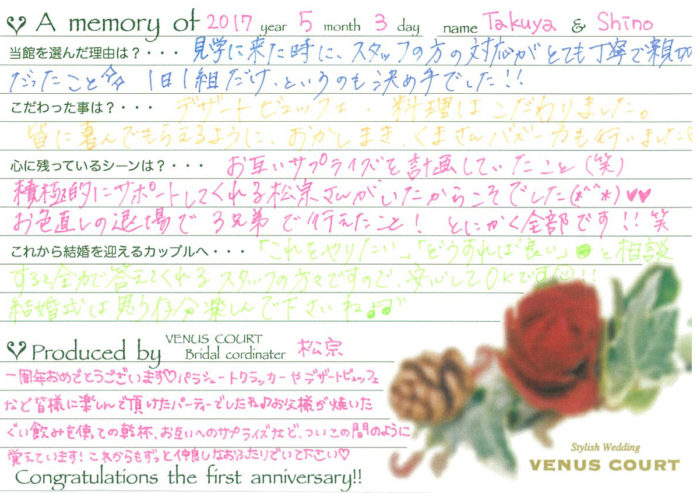 A memory of 2017 year 5 month 3 day name Takuya & Shino
当館を選んだ理由は？・・・ 見学に来た時に、スタッフの方の対応がとても丁寧で親切
だったこと 1日1組だけ、というのも決め手でした!!
こだわった事は？・・・ デザートビュッフェ・料理はこだわりました。
皆に喜んでもらえるように、おかしまき、くまさんバズーカも行いました
心に残っているシーンは？・・・ お互いサプライズを計画していたこと(笑)
積極的にサポートしてくれる松宗さんがいたからこそでした(*^^*)♥♥
お色直しの退場で3兄弟で行えたこと! とにかく全部です!! 笑
これから結婚を迎えるカップルへ・・・「これをやりたい」「どうすれば良い」と相談
すると全力で答えてくれるスタッフの方々ですので、安心してOKです!!
結婚式は思う存分楽しんで下さいね♪♪
Produced by VENUS COURT Bridal cordinater 松宗
一周年おめでとうございます♡パラシュートクラッカーやデザートビュッフェ
など皆様に楽しんで頂けたパーティーでしたね♪お父様が焼いた
ぐい飲みを使っての乾杯、お互いへのサプライズなど、ついこの間のように
覚えています!これからもずっと仲良しなおふたりでいて下さい♡
Congratulations the first anniversary!!
Stylish Wedding
VENUS COURT